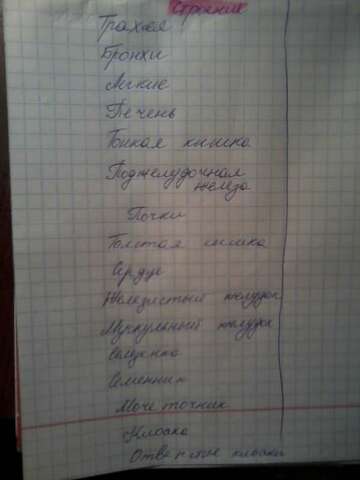 Трахея
Бронхи
Легкие
Печень
Тонкая кишка
Поджелудочная
железа
Почки
Толстая кишка
Сердце
Железистый желудок
Мускульный желудок
Селезенка
Семенник
Мочеточник
Клоака
Отверстие клоаки